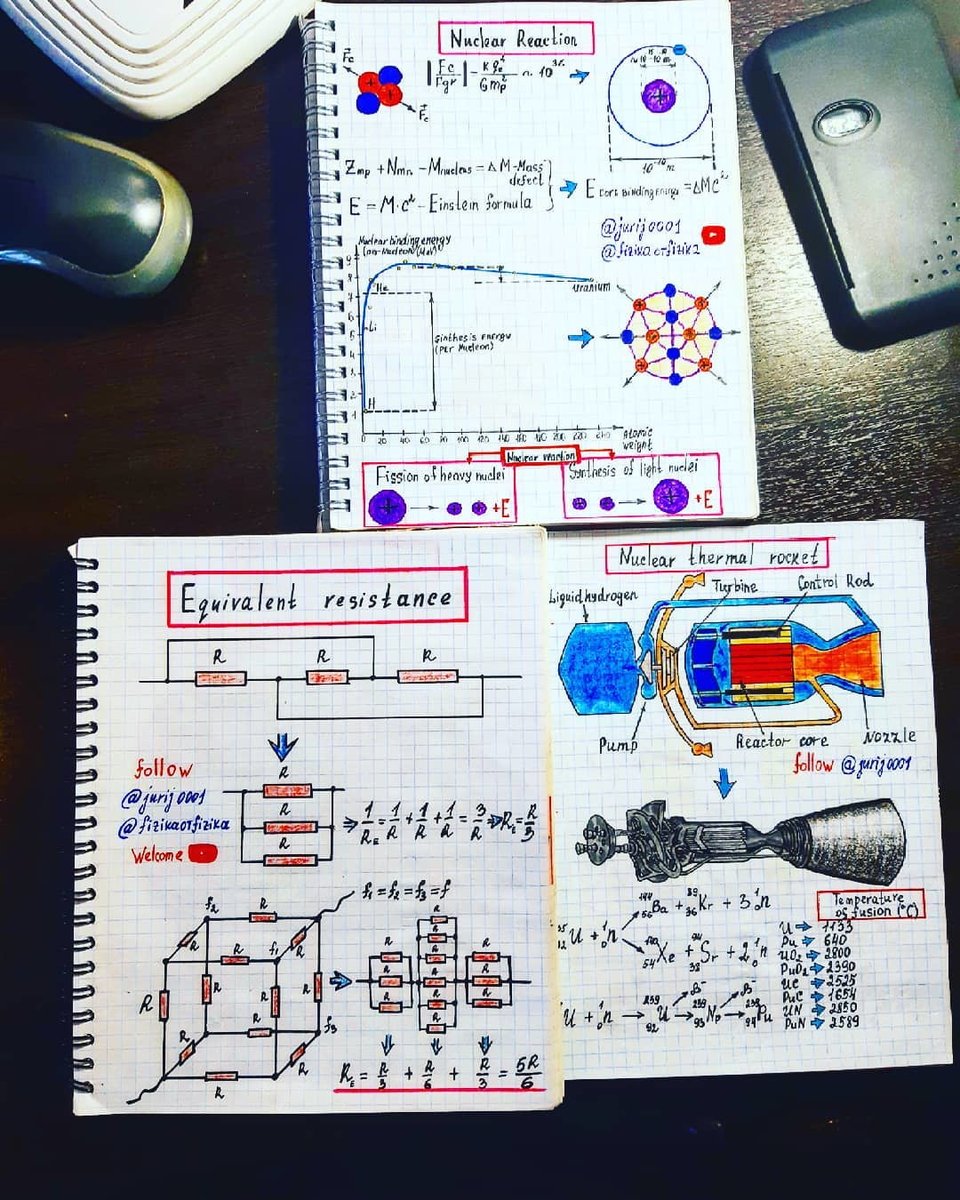 Nuclear Reaction
Fc
|Fc/Fgr| = kqe²/Gmp²
10⁻¹⁰m
Zmp + Nmn - Mnucleus = ΔM-Mass defect
E = M·c² - Einstein formula
E core binding energy = ΔMc²
@jurij0001
@fizikaотfizika
Nuclear binding energy
(per Nucleon) (MeV)
9
8
7
6
5
4
3
2
1
He
Li
H
Uranium
Sinthesis energy
(per Nucleon)
0 20 40 60 80 100 120 140 160 180 200 220 240
Atomic
weight
Nuclear reaction
Fission of heavy nuclei
Synthesis of light nuclei
+ → + + +E
+ + → + +E
Equivalent resistance
R R R
R
R
R
⇒ 1/RE = 1/R + 1/R + 1/R = 3/R ⇒ RE = R/3
follow
@jurij0001
@fizikaотfizika
Welcome
f1 = f2 = f3 = f
f2 R
R f1 R
R
R R R R
R f3
R R
R
R
R
R R R
R R R
R R R
R
RE = R/3 + R/6 + R/3 = 5R/6
Nuclear thermal rocket
Liquid hydrogen
Turbine
Control Rod
Pump
Reactor core
Nozzle
follow @jurij0001
144/56 Ba + 89/36 Kr + 3 1/0 n
U + n
140/54 Xe + 94/38 Sr + 2 1/0 n
U + 1/0 n → 239/92 U → 239/93 Np → 239/94 Pu
β⁻ β⁻
Temperature
of fusion (°C)
U → 1133
Pu → 640
UO2 → 2800
PuO2 → 2390
UC → 2525
PuC → 1654
UN → 2850
PuN → 2589